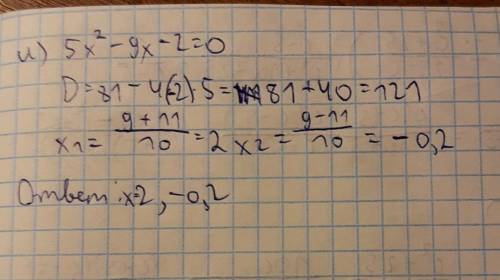 и) 5x² - 9x - 2 = 0
D = 81 - 4(-2)·5 = 81 + 40 = 121
x1 = (9 + 11)/10 = 2 x2 = (9 - 11)/10 = -0,2
Ответ: x=2, -0,2